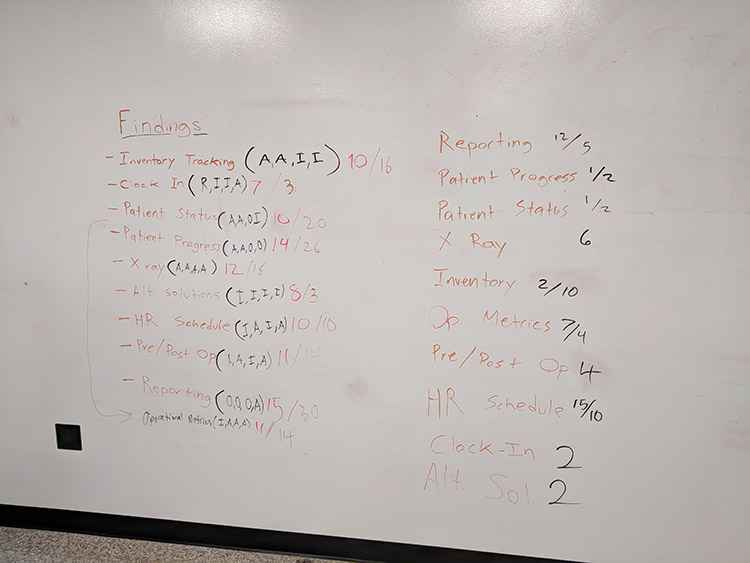 Findings
- Inventory Tracking (A,A,I,I) 10/16
- Clock In (R,I,I,A) 7 /3
- Patient Status (A,A,O,I) 10/20
- Patient Progress (A,A,O,O) 14/26
- X ray (A,A,A,A) 12/16
- Alt solutions (I,I,I,I) 8/3
- HR Schedule (I,A,I,A) 10/10
- Pre/Post Op (A,A,I,A) 11/14
- Reporting (O,O,O,A) 15/30
Operational Metrics (I,A,A,A) 11/14
Reporting 12/5
Patient Progress 1/2
Patient Status 1/2
X Ray 6
Inventory 2/10
Op. Metrics 7/4
Pre/Post Op 4
HR Schedule 15/10
Clock-In 2
Alt. Sol. 2